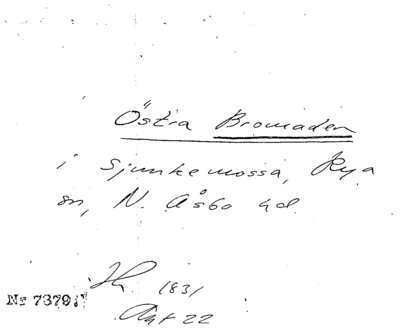 Östra Bromaden
i Sjunkemossa, Rya
sn, N. Åsbo hd.
1831
Akt 22
No 7379.